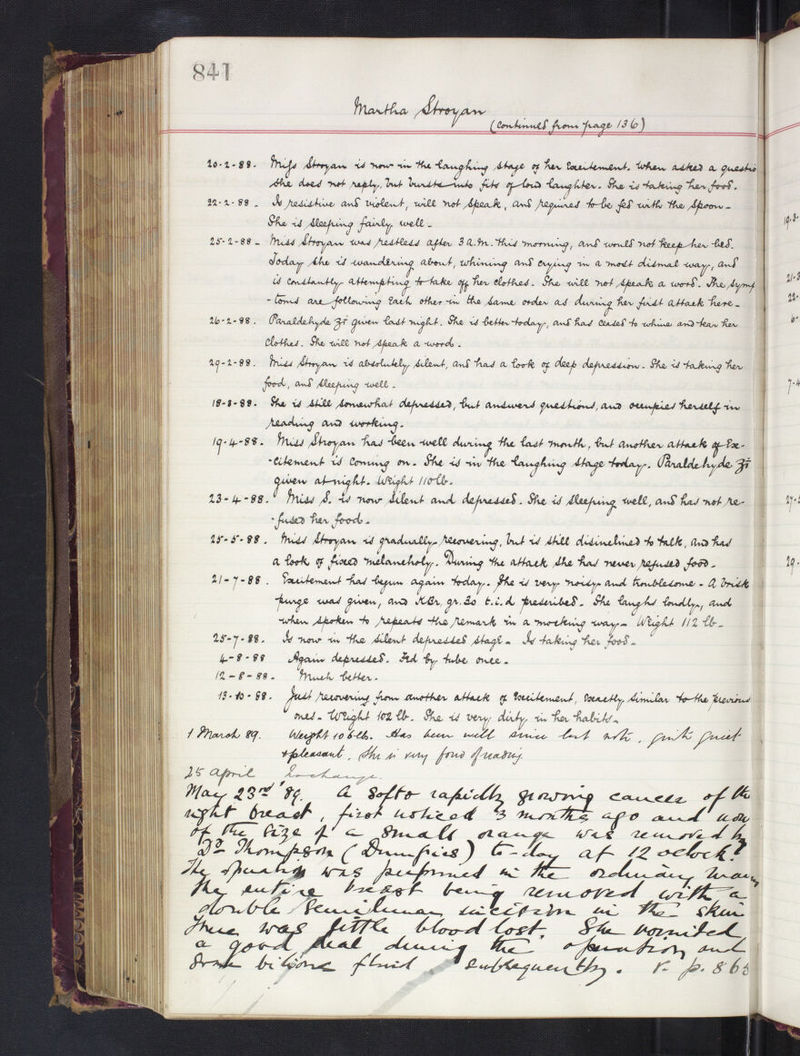 841
Martha Stroyan
(continued from page 136)
20-2-88. Miss Stroyan is now in the laughing stage of her Excitement. When asked a questio
she does not reply, but bursts into fits of loud laughter. She is taking her food.
22-2-88 - Is resistive and violent, will not speak, and requires to be fed with the spoon -
She is sleeping fairly well -
25-2-88 - Miss Stroyan was restless after 3 A.M. this morning, and would not keep her bed.
Today she is wandering about, whining and crying in a most dismal way, and
is constantly attempting to take off her clothes. She will not speak a word. The symp
-toms are following each other in the same order as during her first attack here -
26-2-88. Paraldehyde ʒi given last night. She is better today, and has ceased to whine and tear her
clothes. She will not speak a word.
29-2-88. Miss Stroyan is absolutely silent, and has a look of deep depression. She is taking her
food, and sleeping well.
18-3-88. She is still somewhat depressed, but answers questions, and occupies herself in
reading and working.
19-4-88. Miss Stroyan has been well during the last month, but another attack of Ex-
-citement is coming on. She is in the laughing stage today. Paraldehyde ʒi
given at night. Weight 110 lb.
23-4-88. Miss S. is now silent and depressed. She is sleeping well, and has not re-
-fused her food -
25-5-88. Miss Stroyan is gradually recovering, but is still disinclined to talk, and has
a look of fixed melancholy. During the attack she has never refused food -
21-7-88. Excitement has begun again today. She is very noisy and troublesome - A brisk
purge was given, and KBr. gr. 30 t.i.d prescribed. She laughs loudly, and
when spoken to repeats the remark in a mocking way - Weight 112 lb -
25-7-88. Is now in the silent depressed stage - Is taking her food -
4-8-88 Again depressed. Fed by tube once -
12-8-88 - Much better.
13-10-88. Just recovering from another attack of Excitement, exactly similar to the previous
ones - Weight 102 lb. She is very dirty in her habits -
1 March 89. Weight 106 lb. Has been well since last note, quite quiet
& pleasant. She is very fond of reading.
25 April Unchanged.
May 23rd '89. A soft & rapidly growing cancer of the
right breast, first noticed 3 months ago and now
of the size of a small orange was removed by
Dr Thompson (Dumfries) to-day at 12 oclock.
The operation was performed in the ordinary mann
the entire breast being removed with a
double semilunar incision in the skin
There was little blood lost. She vomited
a good deal during the operation and
some bilious fluid subsequently. v. p. 865
19-3-
21-3
22-
6-
7-4
27-
29-